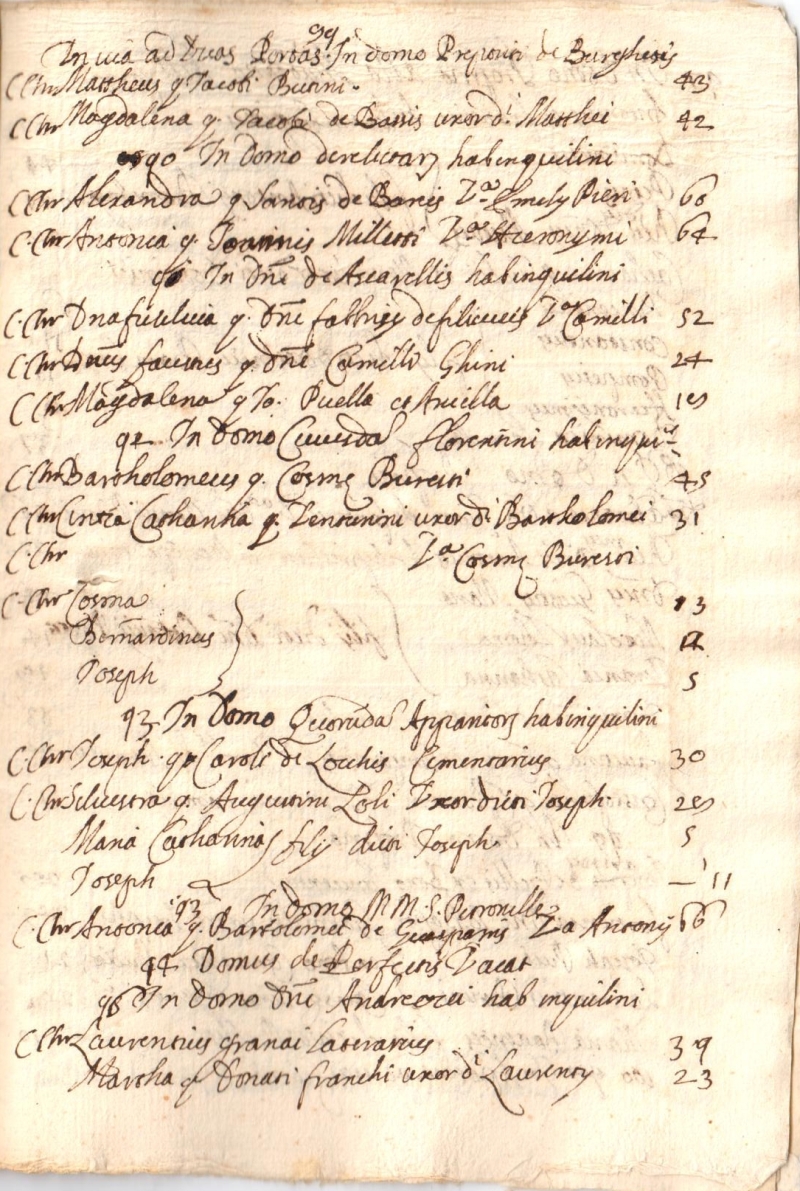 99
In via ad Duas Portas. In domo Prepositi de Burghesis
C Chr Mattheus q Jacobi Butini. 43
C Chr Magdalena q. Jacobi de Bassis uxor d.i Matthei 42
90 In Domo derelictar habinquilini
C Chr Alexandra q Santis de V.a Pieri 60
C. Chr Antonia q. Joannis Milletti V.a Hieronymi 64
91 In Dne de Ascarellis habinquilini
C. Chr Dna q. Dni V.a Camilli 52
C Chr Dnus q. Dni Camilli Ghini 24
C Chr Magdalena q Jo. Puella et Ancilla
92. In Domo Cuiusda Florentini habinqui
C Chr Bartholomeus q. Cosme Buresti 45
C Chr Cintia Catharina q. Venturini uxor d.i Bartholomei 31
C. Chr V.a Cosme Buresti
C. Chr Cosma 13
Bernardinus
Joseph 5
93. In Domo Quorunda habinquilini
C. Chr Joseph q Caroli de Locchis Cementarius 30
C. Chr Silvestra q. Augustini Loli Uxor dicti Joseph
Maria Catharina filij dicti Joseph 5
Joseph — 11
93 In domo M M S. Petronille
C. Chr Antonia q. Bartolomei de V.a Antonij 66
94 Domus de Perfectis Vacat
96 In Domo Dni Andreozei hab inquilini
C Chr Laurentius Granai Laterarius 39
Martha q Donati Franchi uxor d.i Laurentij 23